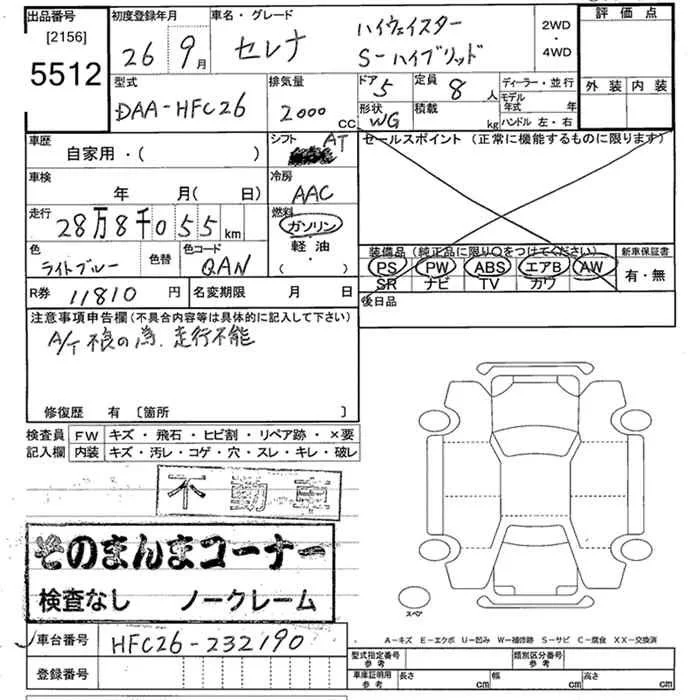 出品番号
[2156]
5512
初度登録年月
26 9月
車名・グレード
セレナ
ハイウェイスター
S-ハイブリッド
2WD
・
4WD
評価点
外装 内装
型式
DAA-HFC26
排気量
2000 CC
ドア 5
定員 8 人
形状 WG
積載 kg
ディーラー・並行
モデル年式 年
ハンドル 左・右
車歴
自家用・( )
シフト AT
セールスポイント (正常に機能するものに限ります)
車検
年 月( 日)
冷房 AAC
走行
28万8千055km
燃料
ガソリン
軽油
( ・ )
色
ライトブルー
色替
色コード
QAN
装備品 (純正品に限り○をつけてください)
PS PW ABS エアB AW
SR ナビ TV カワ
新車保証書
有・無
R券 11810 円
名変期限 月 日
後日品
注意事項申告欄(不具合内容等は具体的に記入して下さい)
A/T 不良の為、走行不能
修復歴 有 [箇所 ]
検査員 FW キズ・飛石・ヒビ割・リペア跡・×要
記入欄 内装 キズ・汚レ・コゲ・穴・スレ・キレ・破レ
不動車
そのまんまコーナー
検査なし ノークレーム
スペア
A-キズ E-エクボ U-凹み W-補修跡 S-サビ C-腐食 XX-交換済
車台番号 HFC26-232190
登録番号
型式指定番号 参考
類別区分番号 参考
車庫証明用 参考
長さ cm
幅 cm
高さ cm